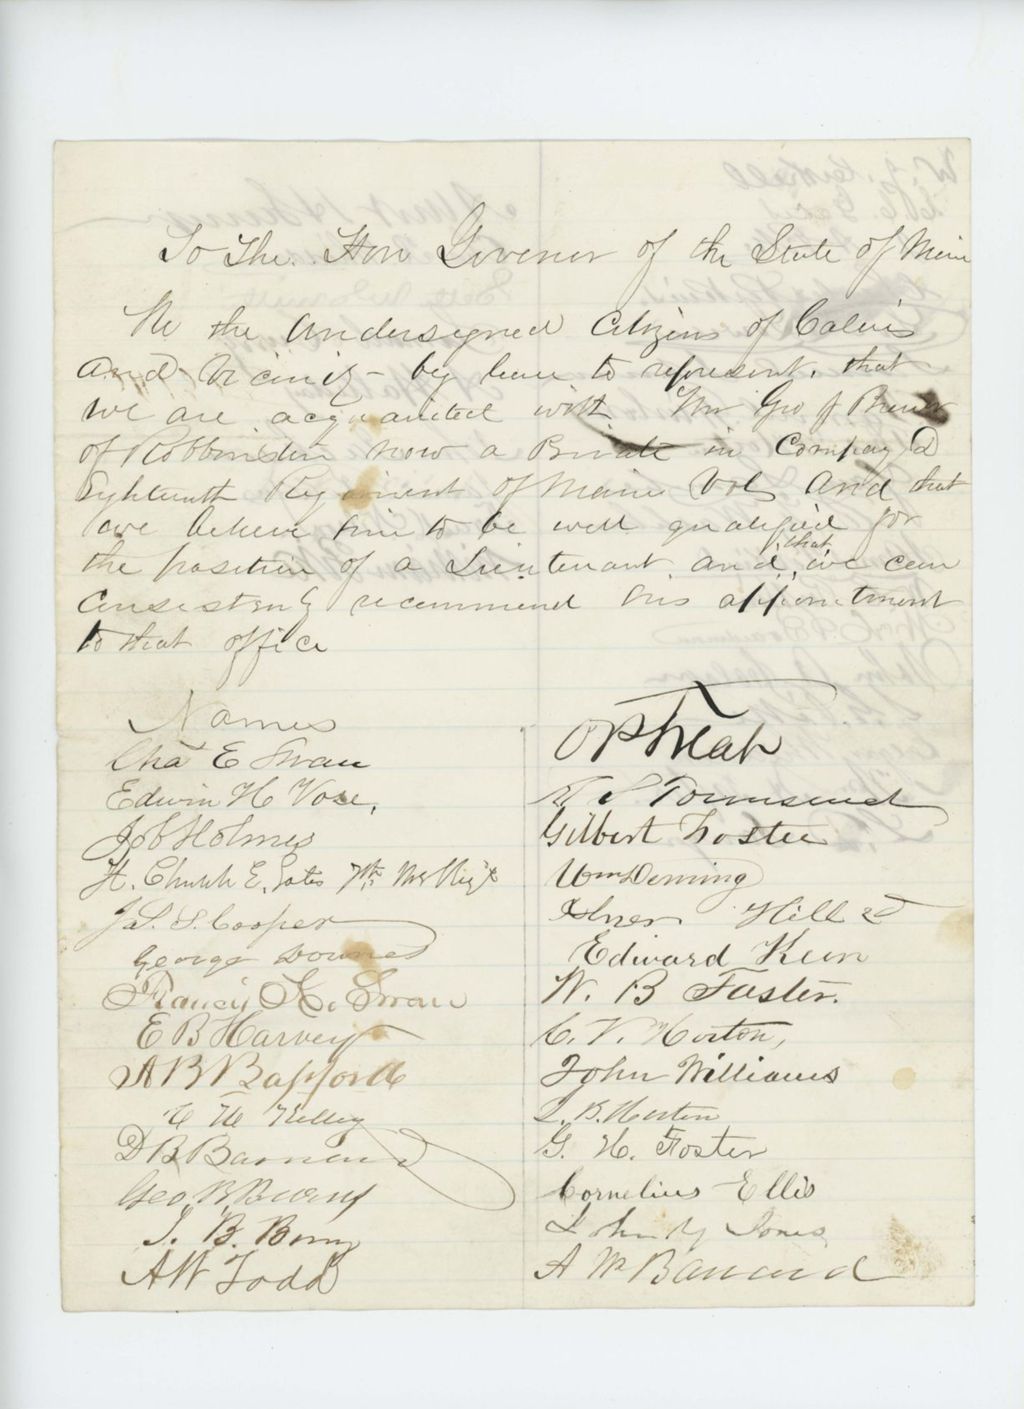 To The Hon Govenor of the State of Maine
We the undersigned Citizens of Calais
and Vicinity - beg leave to represent, that
we are acquainted with Mr Geo F Brewer
of Robbinston now a Private in Company D
Eighteenth Regiment of Maine Vols and that
we believe him to be well qualified for
the position of a Lieutenant and that we can
consistently recommend his appointment
to that office
Names
Cha E Swan
Edwin H Vose,
Job Holmes
H. Church E. Gates 7th Me Regt
Jas. S. Cooper
George Downes
Francis K. Swan
E B Harvey
A B
C H Kelley
D B Barnard
Geo B
J. B.
A W Todd
O P Treat
S Townsend
Gilbert Foster
Wm Deming
Abner Hill 2d
Edward Kern
W. B Foster.
C. V. Horton,
John Williams
L. B. Horton
G. H. Foster
Cornelius Ellis
John Jones
A M Barnard